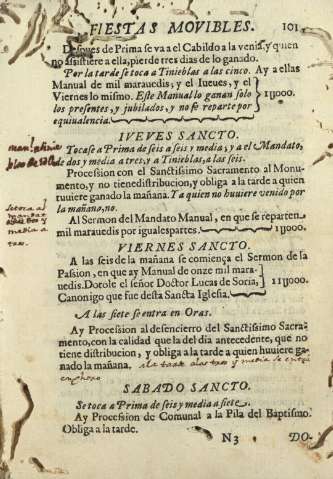 FIESTAS MOVIBLES. 101
Despues de Prima se va a el Cabildo a la venia, y quien
no assistiere a ella, pierde tres dias de lo ganado.
Por la tarde se toca a Tinieblas a las cinco. Ay a ellas
Manual de mil maravedis, y el Iueves, y el
Viernes lo mismo. Este Manual lo ganan solo
los presentes, y jubilados, y no se reparte por
equivalencia.
1U000.
IVEVES SANCTO.
Tocase a Prima de seis a seis y media, y a el Mandato,
de dos y media a tres, y a Tinieblas, a las seis.
Procession con el Sanctissimo Sacramento al Monu-
mento, y no tiene distribucion, y obliga a la tarde a quien
tuuiere ganado la mañana. Y a quien no huviere venido por
la mañana, no.
Al Sermon del Mandato Manual, en que se reparten
mil maravedis por iguales partes.
1U000.
VIERNES SANCTO.
A las seis de la mañana se comiença el Sermon de la
Passion, en que ay Manual de onze mil mara-
uedis. Dotole el señor Doctor Lucas de Soria,
Canonigo que fue desta Sancta Iglesia.
11U000.
A las siete se entra en Oras.
Ay Procession al desencierro del Sanctissimo Sacra-
mento, con la calidad que la del dia antecedente, que no
tiene distribucion, y obliga a la tarde a quien huuiere ga-
nado la mañana.
SABADO SANCTO.
Se toca a Prima de seis y media a siete.
Ay Procession de Comunal a la Pila del Baptismo.
Obliga a la tarde.
N3 DO-